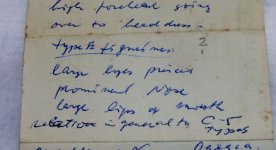 high forehead going
over to headdress
type B figurines ?
large eyes pierced
prominent nose
large lips of mouth
relation in general to C-5
types
Oaxaca